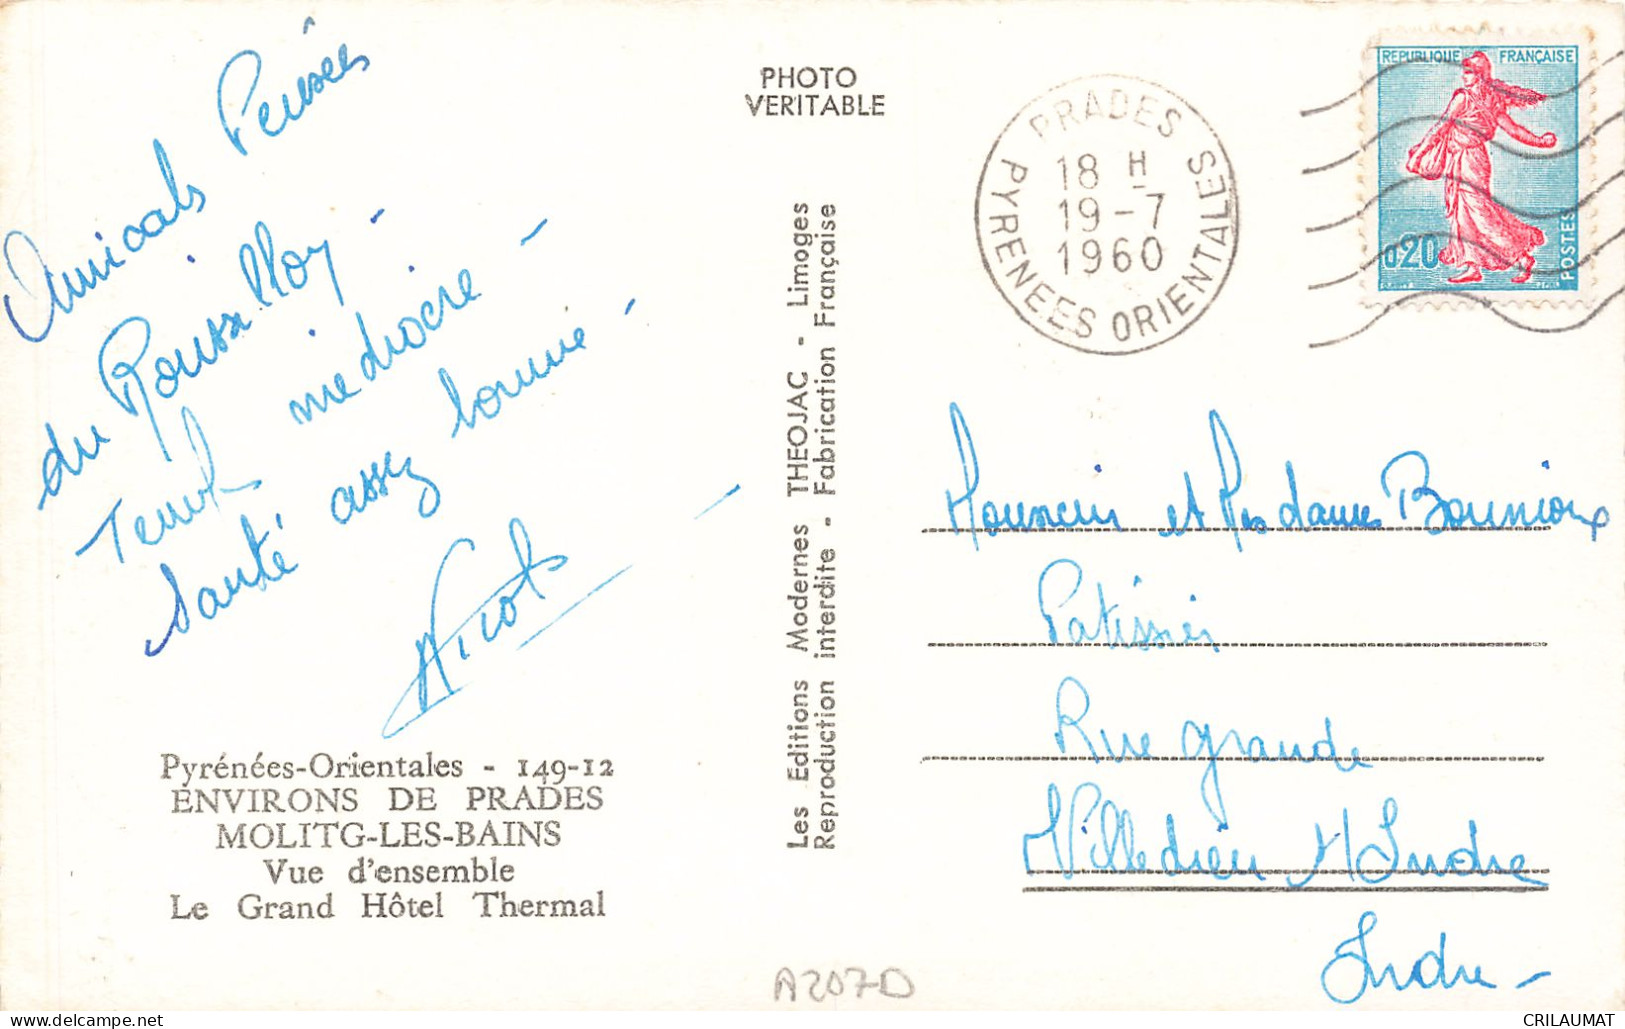 Amicals Pensées
du Roussilloy -
Temps médiocre -
Santé assez bonne -
Nicot
Pyrénées-Orientales - 149-12
ENVIRONS DE PRADES
MOLITG-LES-BAINS
Vue d'ensemble
Le Grand Hôtel Thermal
PHOTO
VERITABLE
Les Editions Modernes THEOJAC - Limoges
Reproduction interdite - Fabrication Française
PRADES
18 H
19-7
1960
PYRENEES ORIENTALES
REPUBLIQUE FRANÇAISE
0,20
POSTES
Monsieur et Mesdames Bounioux
Patissier
Rue grande
Villedieu s/Indre
Indre -
A207D
CRILAUMAT